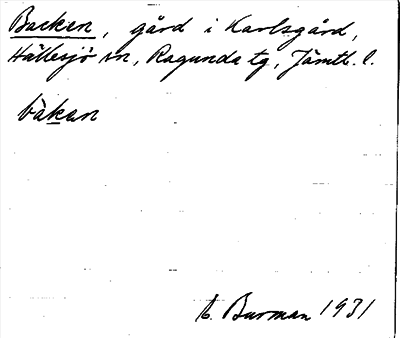 Backen, gård i Karlsgård,
Hällesjö sn, Ragunda tg, Jämtl. l.
bàkan
A. Burman 1931